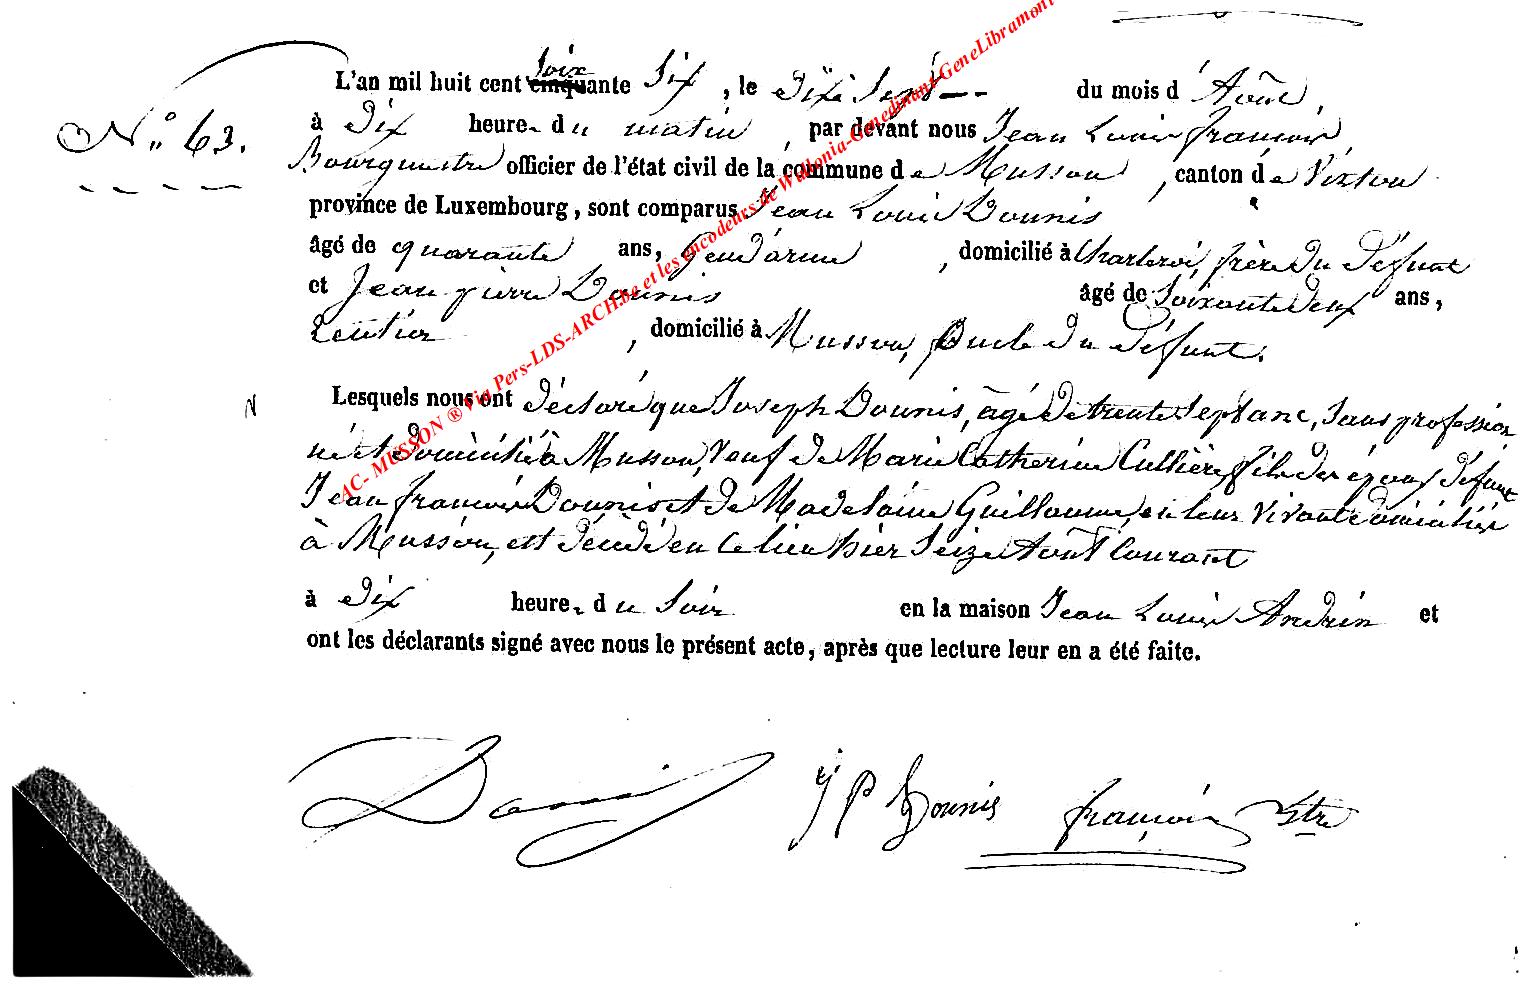 N° 63.
L'an mil huit cent soixante six, le dix sept du mois d'Août,
à dix heures du matin, par devant nous Jean Louis François,
Bourgmestre officier de l'état civil de la commune de Musson, canton de Virton
province de Luxembourg, sont comparus Jean Louis Dounis
âgé de quarante ans, Gendarme, domicilié à Charleroi, frère du défunt
et Jean pierre Dounis âgé de soixante deux ans,
Rentier, domicilié à Musson, Oncle du défunt.
Lesquels nous ont déclaré que Joseph Dounis, âgé de trente sept ans, sans profession
né et domicilié à Musson, veuf de Marie Catherine Cullière, fils des époux défunts
Jean françois Dounis et de Madelaine Guillaume, en leur vivant domiciliés
à Musson, est décédé en ce lieu hier seize Août Courant
à dix heures du soir en la maison Jean Louis Andrin et
ont les déclarants signé avec nous le présent acte, après que lecture leur en a été faite.
Dounis JP Dounis françois Bstre
AC- MUSSON ® Via Pers-LDS-ARCH.be et les encodeurs de Wallonia-Genedinant-GeneLibramont